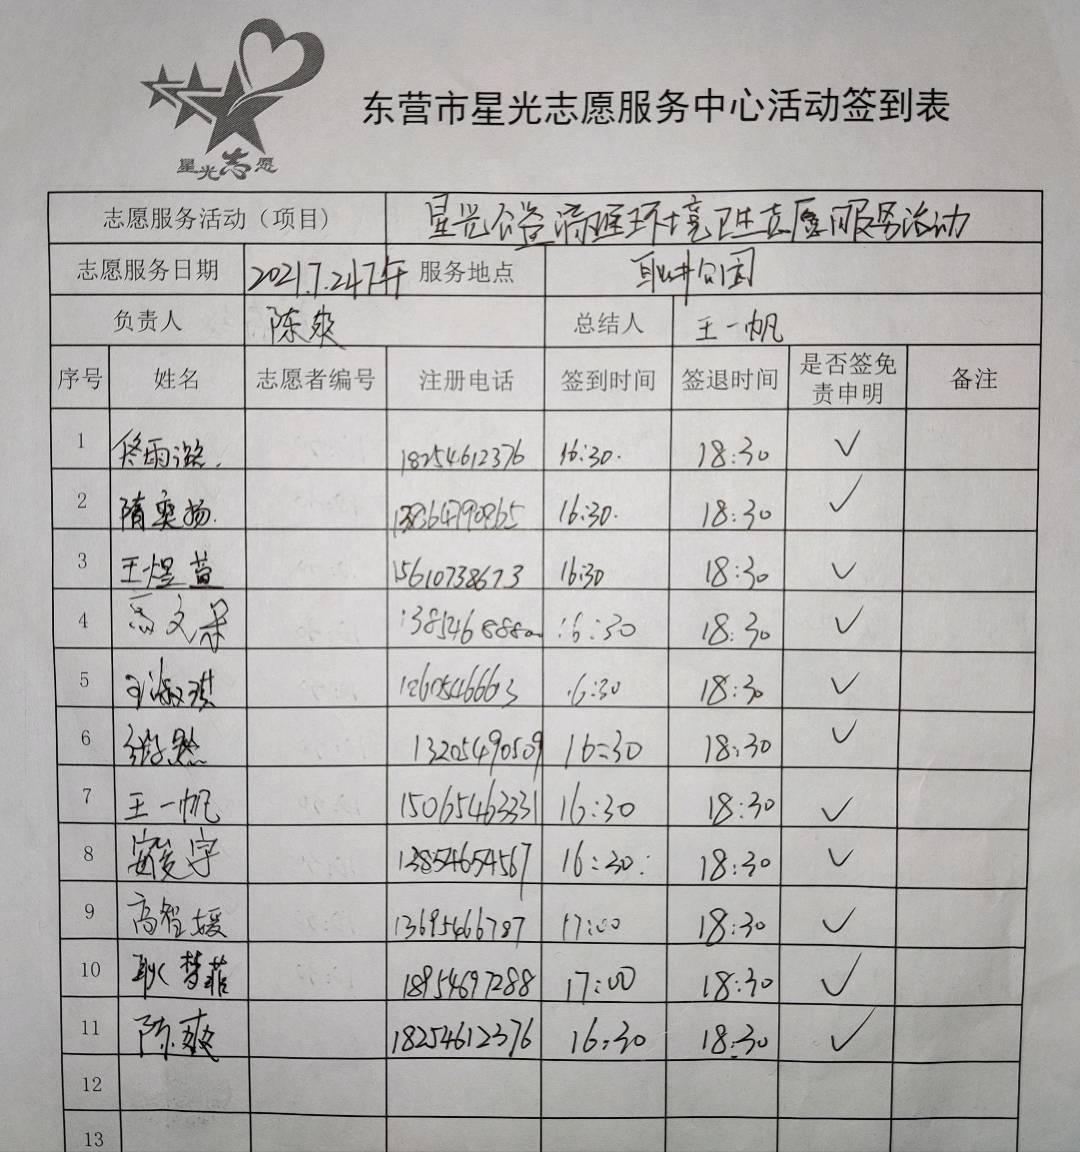 星光志愿
东营市星光志愿服务中心活动签到表
志愿服务活动（项目） 星光公益清理环境卫生志愿服务活动
志愿服务日期 2021.7.24下午 服务地点 耿井公园
负责人 陈爽 总结人 王一帆
序号 姓名 志愿者编号 注册电话 签到时间 签退时间 是否签免责申明 备注
1 佟雨潞. 18254612376 16:30. 18:30 ✓
2 隋奕扬. 13864790865 16:30. 18:30 ✓
3 王煜萱 15610738673 16:30 18:30 ✓
4 16:30 18:30 ✓
5 王淑琪 16:30 18:30 ✓
6 13205490509 16:30 18:30 ✓
7 王一帆 15065463331 16:30 18:30 ✓
8 13854654567 16:30. 18:30 ✓
9 高智媛 13695466787 17:00 18:30 ✓
10 耿梦菲 18954697288 17:00 18:30 ✓
11 陈爽 18254612376 16:30 18:30 ✓
12
13